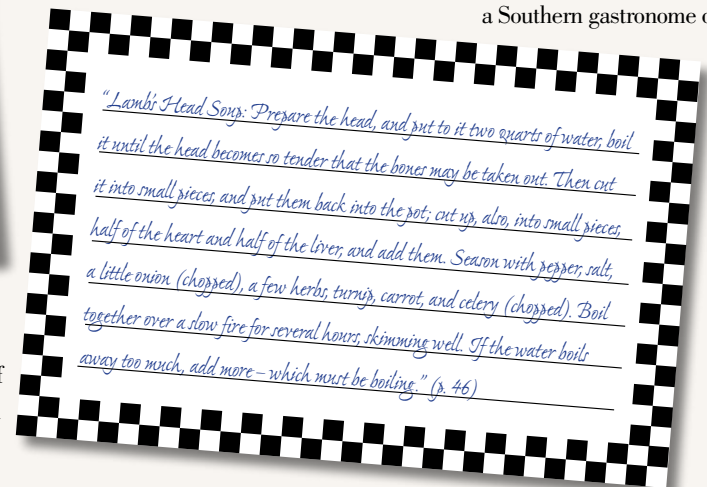 a Southern gastronome
“Lamb’s Head Soup: Prepare the head, and put to it two quarts of water, boil
it until the head becomes so tender that the bones may be taken out. Then cut
it into small pieces, and put them back into the pot; cut up, also, into small pieces,
half of the heart and half of the liver, and add them. Season with pepper, salt,
a little onion (chopped), a few herbs, turnip, carrot, and celery (chopped). Boil
together over a slow fire for several hours, skimming well. If the water boils
away too much, add more – which must be boiling.” (p. 46)